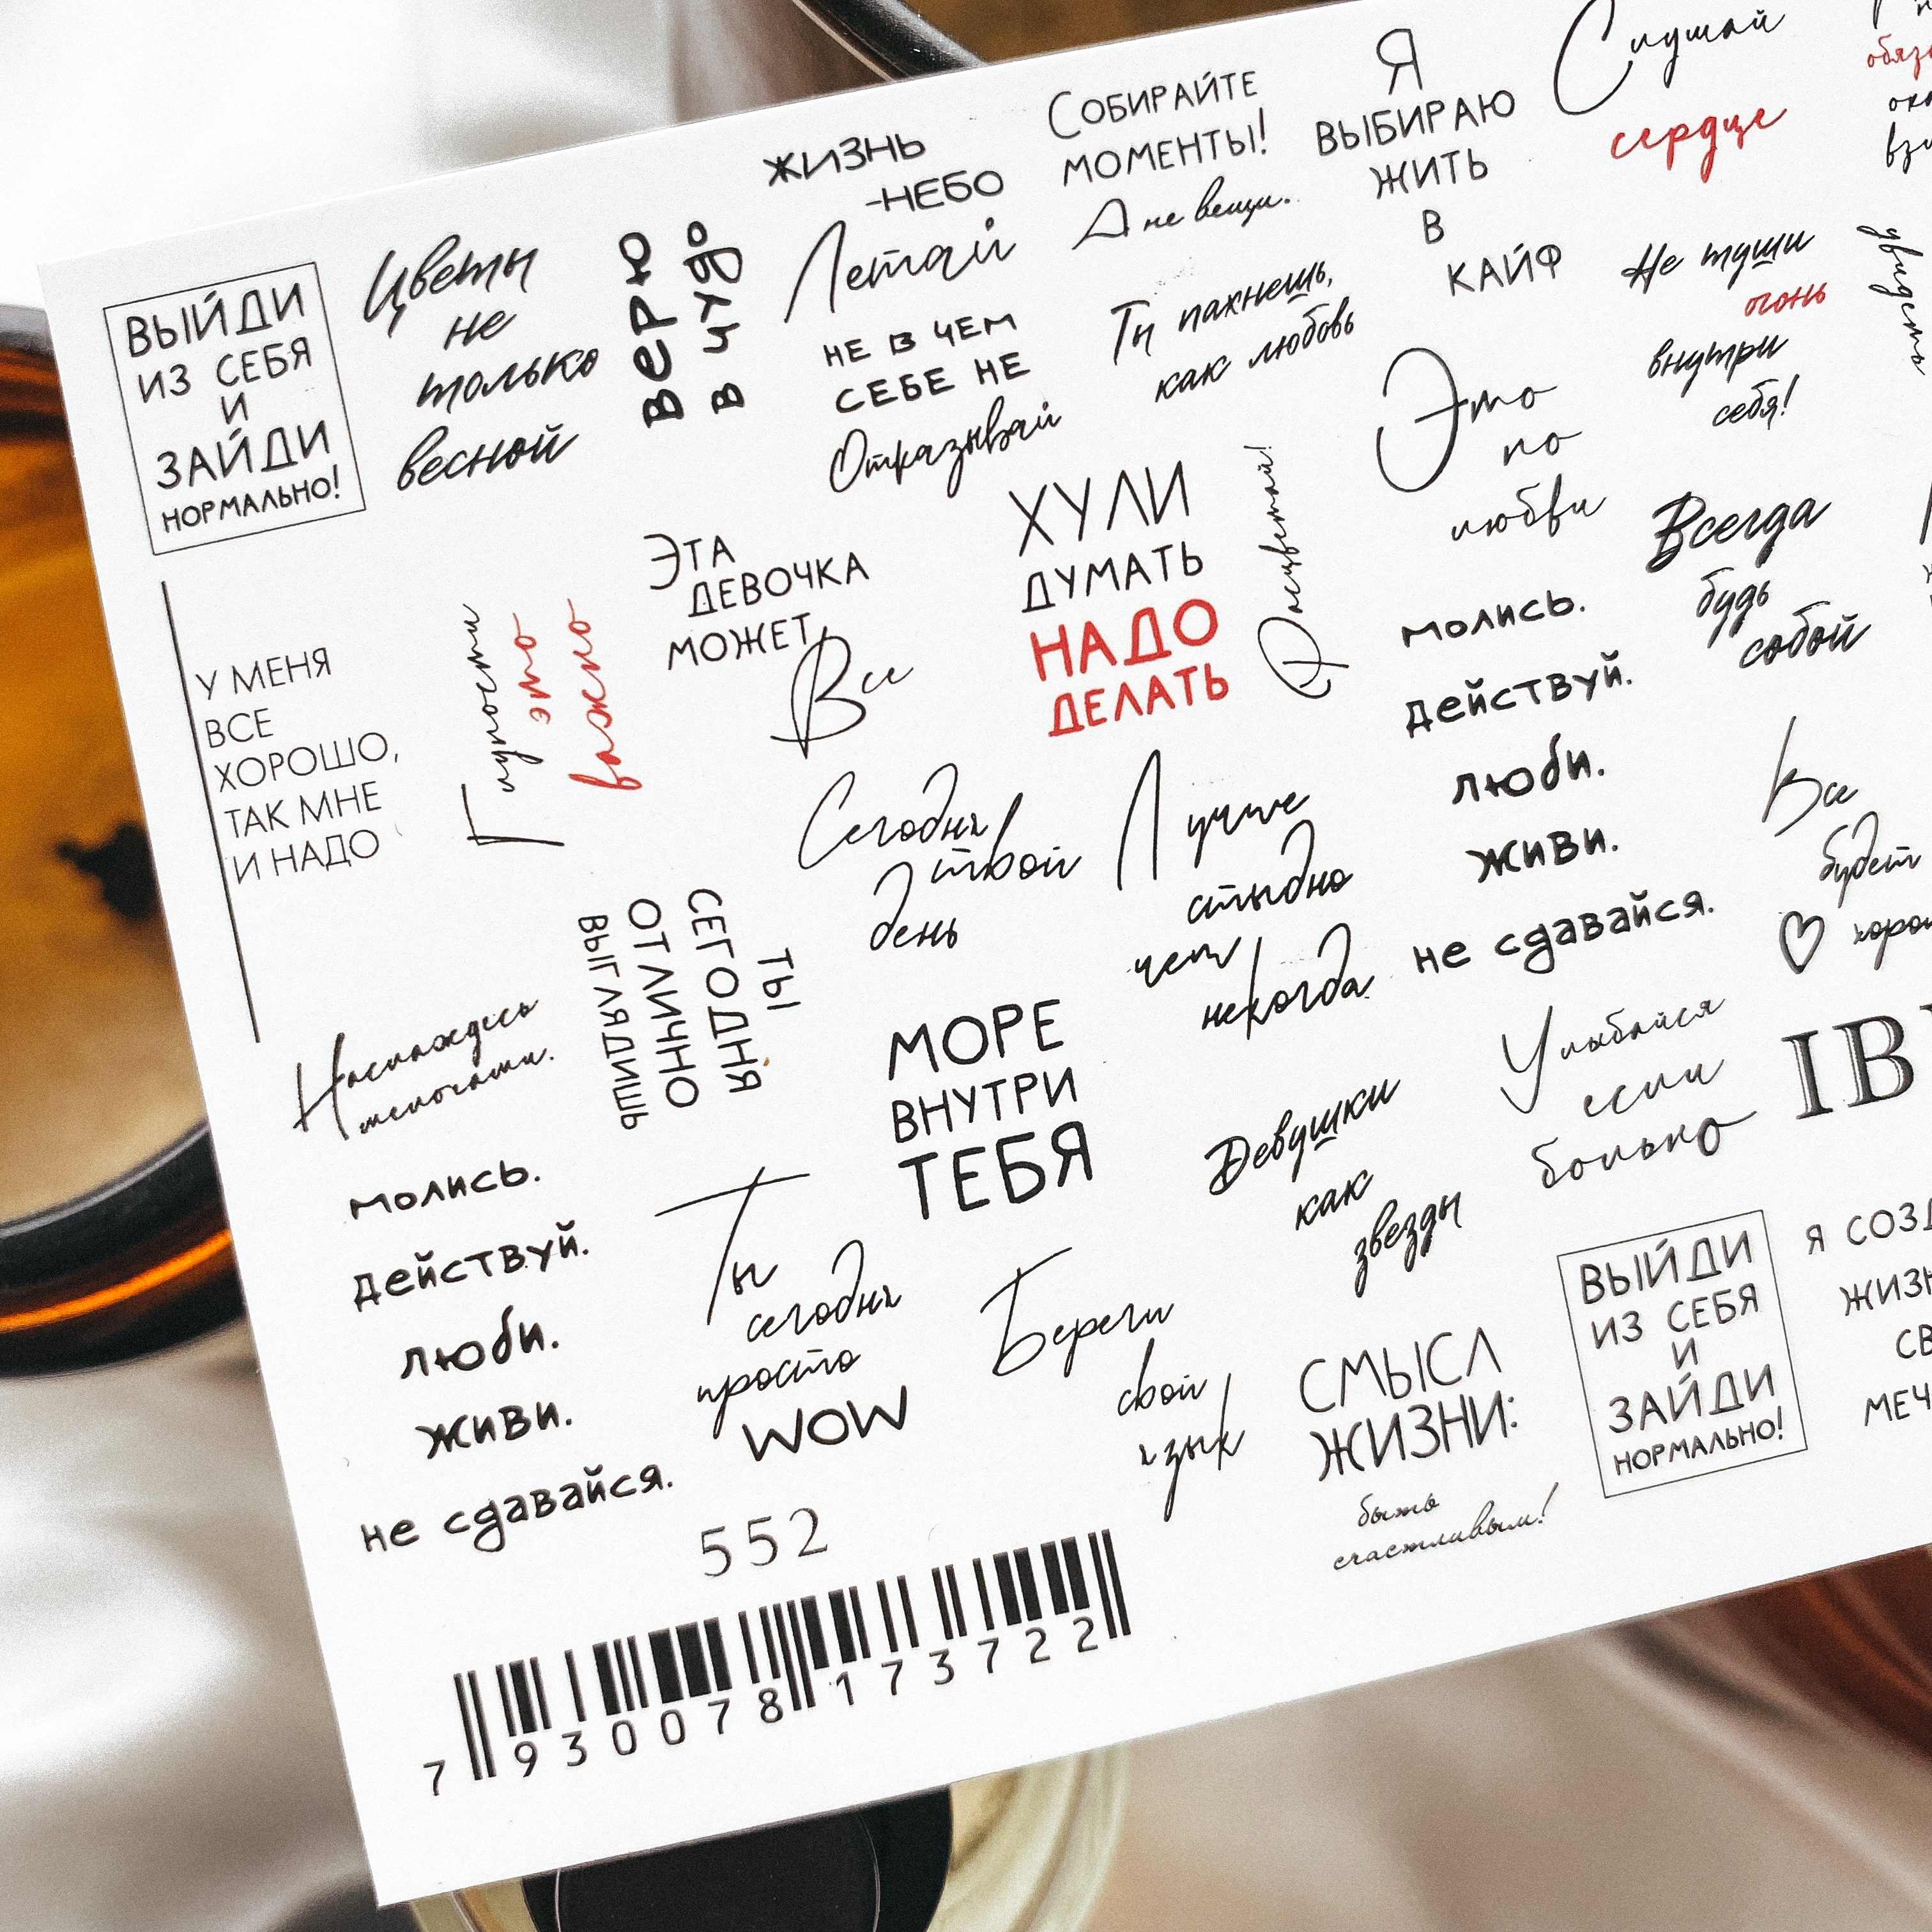 ВЫЙДИ
ИЗ СЕБЯ
И
ЗАЙДИ
НОРМАЛЬНО!
Цветы
не
только
весной
Верю
в чудо
ЖИЗНЬ
-НЕБО
Летай
НЕ В ЧЕМ
СЕБЕ НЕ
Отказывай
СОБИРАЙТЕ
МОМЕНТЫ!
А не вещи.
Ты пахнешь,
как любовь
Я
ВЫБИРАЮ
ЖИТЬ
В
КАЙФ
Слушай
сердце
Не туши
огонь
внутри
себя!
увидеть
У МЕНЯ
ВСЕ
ХОРОШО,
ТАК МНЕ
И НАДО
Глупости
это
важно
ЭТА
ДЕВОЧКА
МОЖЕТ
Все
ХУЛИ
ДУМАТЬ
НАДО
ДЕЛАТЬ
Расцветай!
Это
по
любви
Всегда
будь
собой
молись.
действуй.
люби.
живи.
не сдавайся.
Сегодня
твой
день
Лучше
стыдно
чем
некогда
Все
будет
ТЫ
СЕГОДНЯ
ОТЛИЧНО
ВЫГЛЯДИШЬ
Наслаждесь
мелочами.
МОРЕ
ВНУТРИ
ТЕБЯ
Девушки
как
звезды
Улыбайся
если
больно
молись.
действуй.
люби.
живи.
не сдавайся.
Ты
сегодня
просто
WOW
Береги
свой
язык
СМЫСЛ
ЖИЗНИ:
быть
счастливым!
ВЫЙДИ
ИЗ СЕБЯ
И
ЗАЙДИ
НОРМАЛЬНО!
Я
552
7 930078 173722